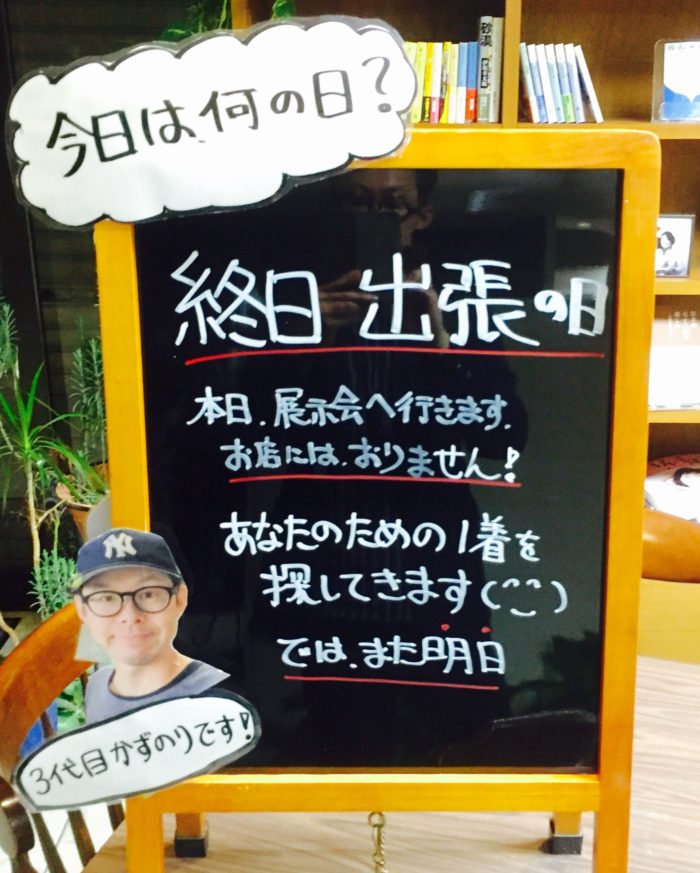 今日は、何の日?
砂漠
終日 出張の日
本日、展示会へ行きます。
お店には、おりません!
あなたのための1着を
探してきます(^^)
では、また明日
NY
3代目かずのりです!